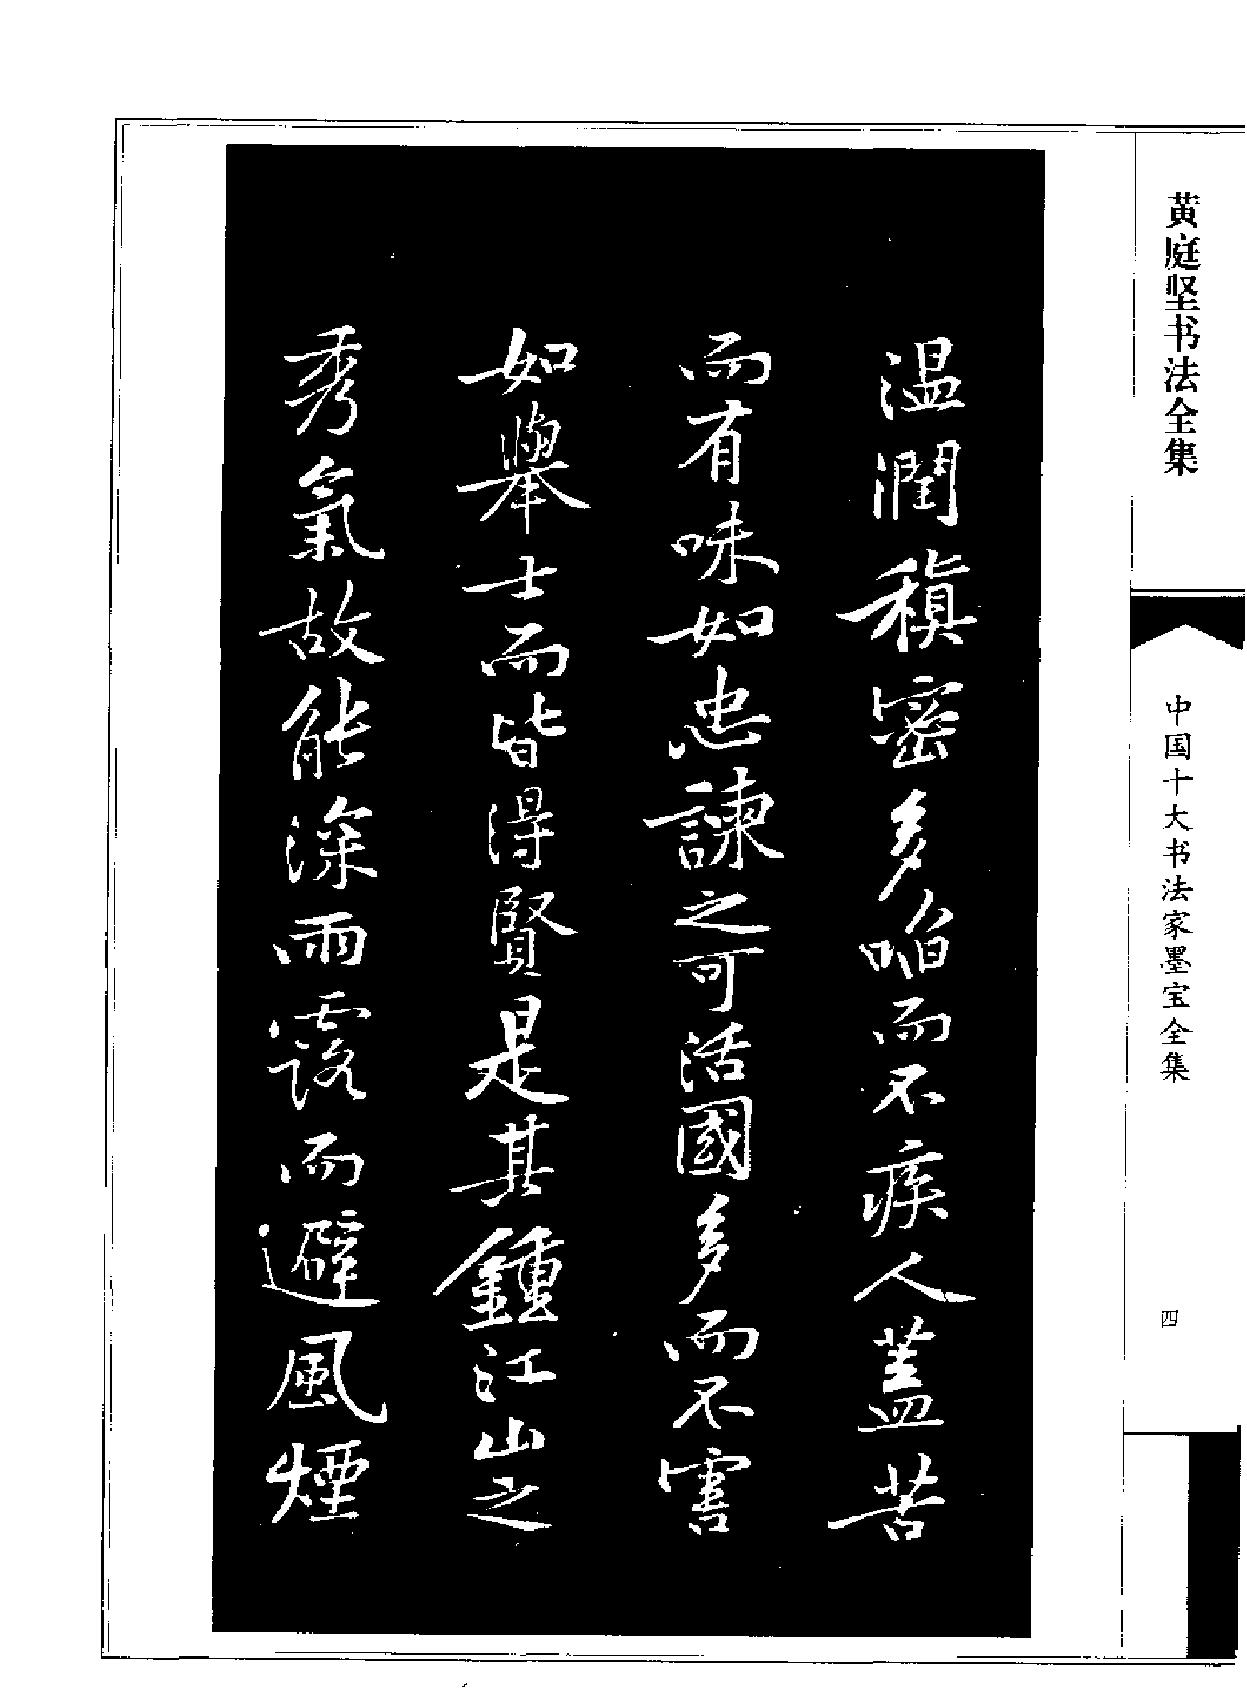 黄庭坚书法全集
中国十大书法家墨宝全集
四
温潤稹密多啗而不疾人蓋苦
而有味如忠諫之可活國多而不害
如舉士而皆得賢是其鍾江山之
秀氣故能深雨露而避風煙